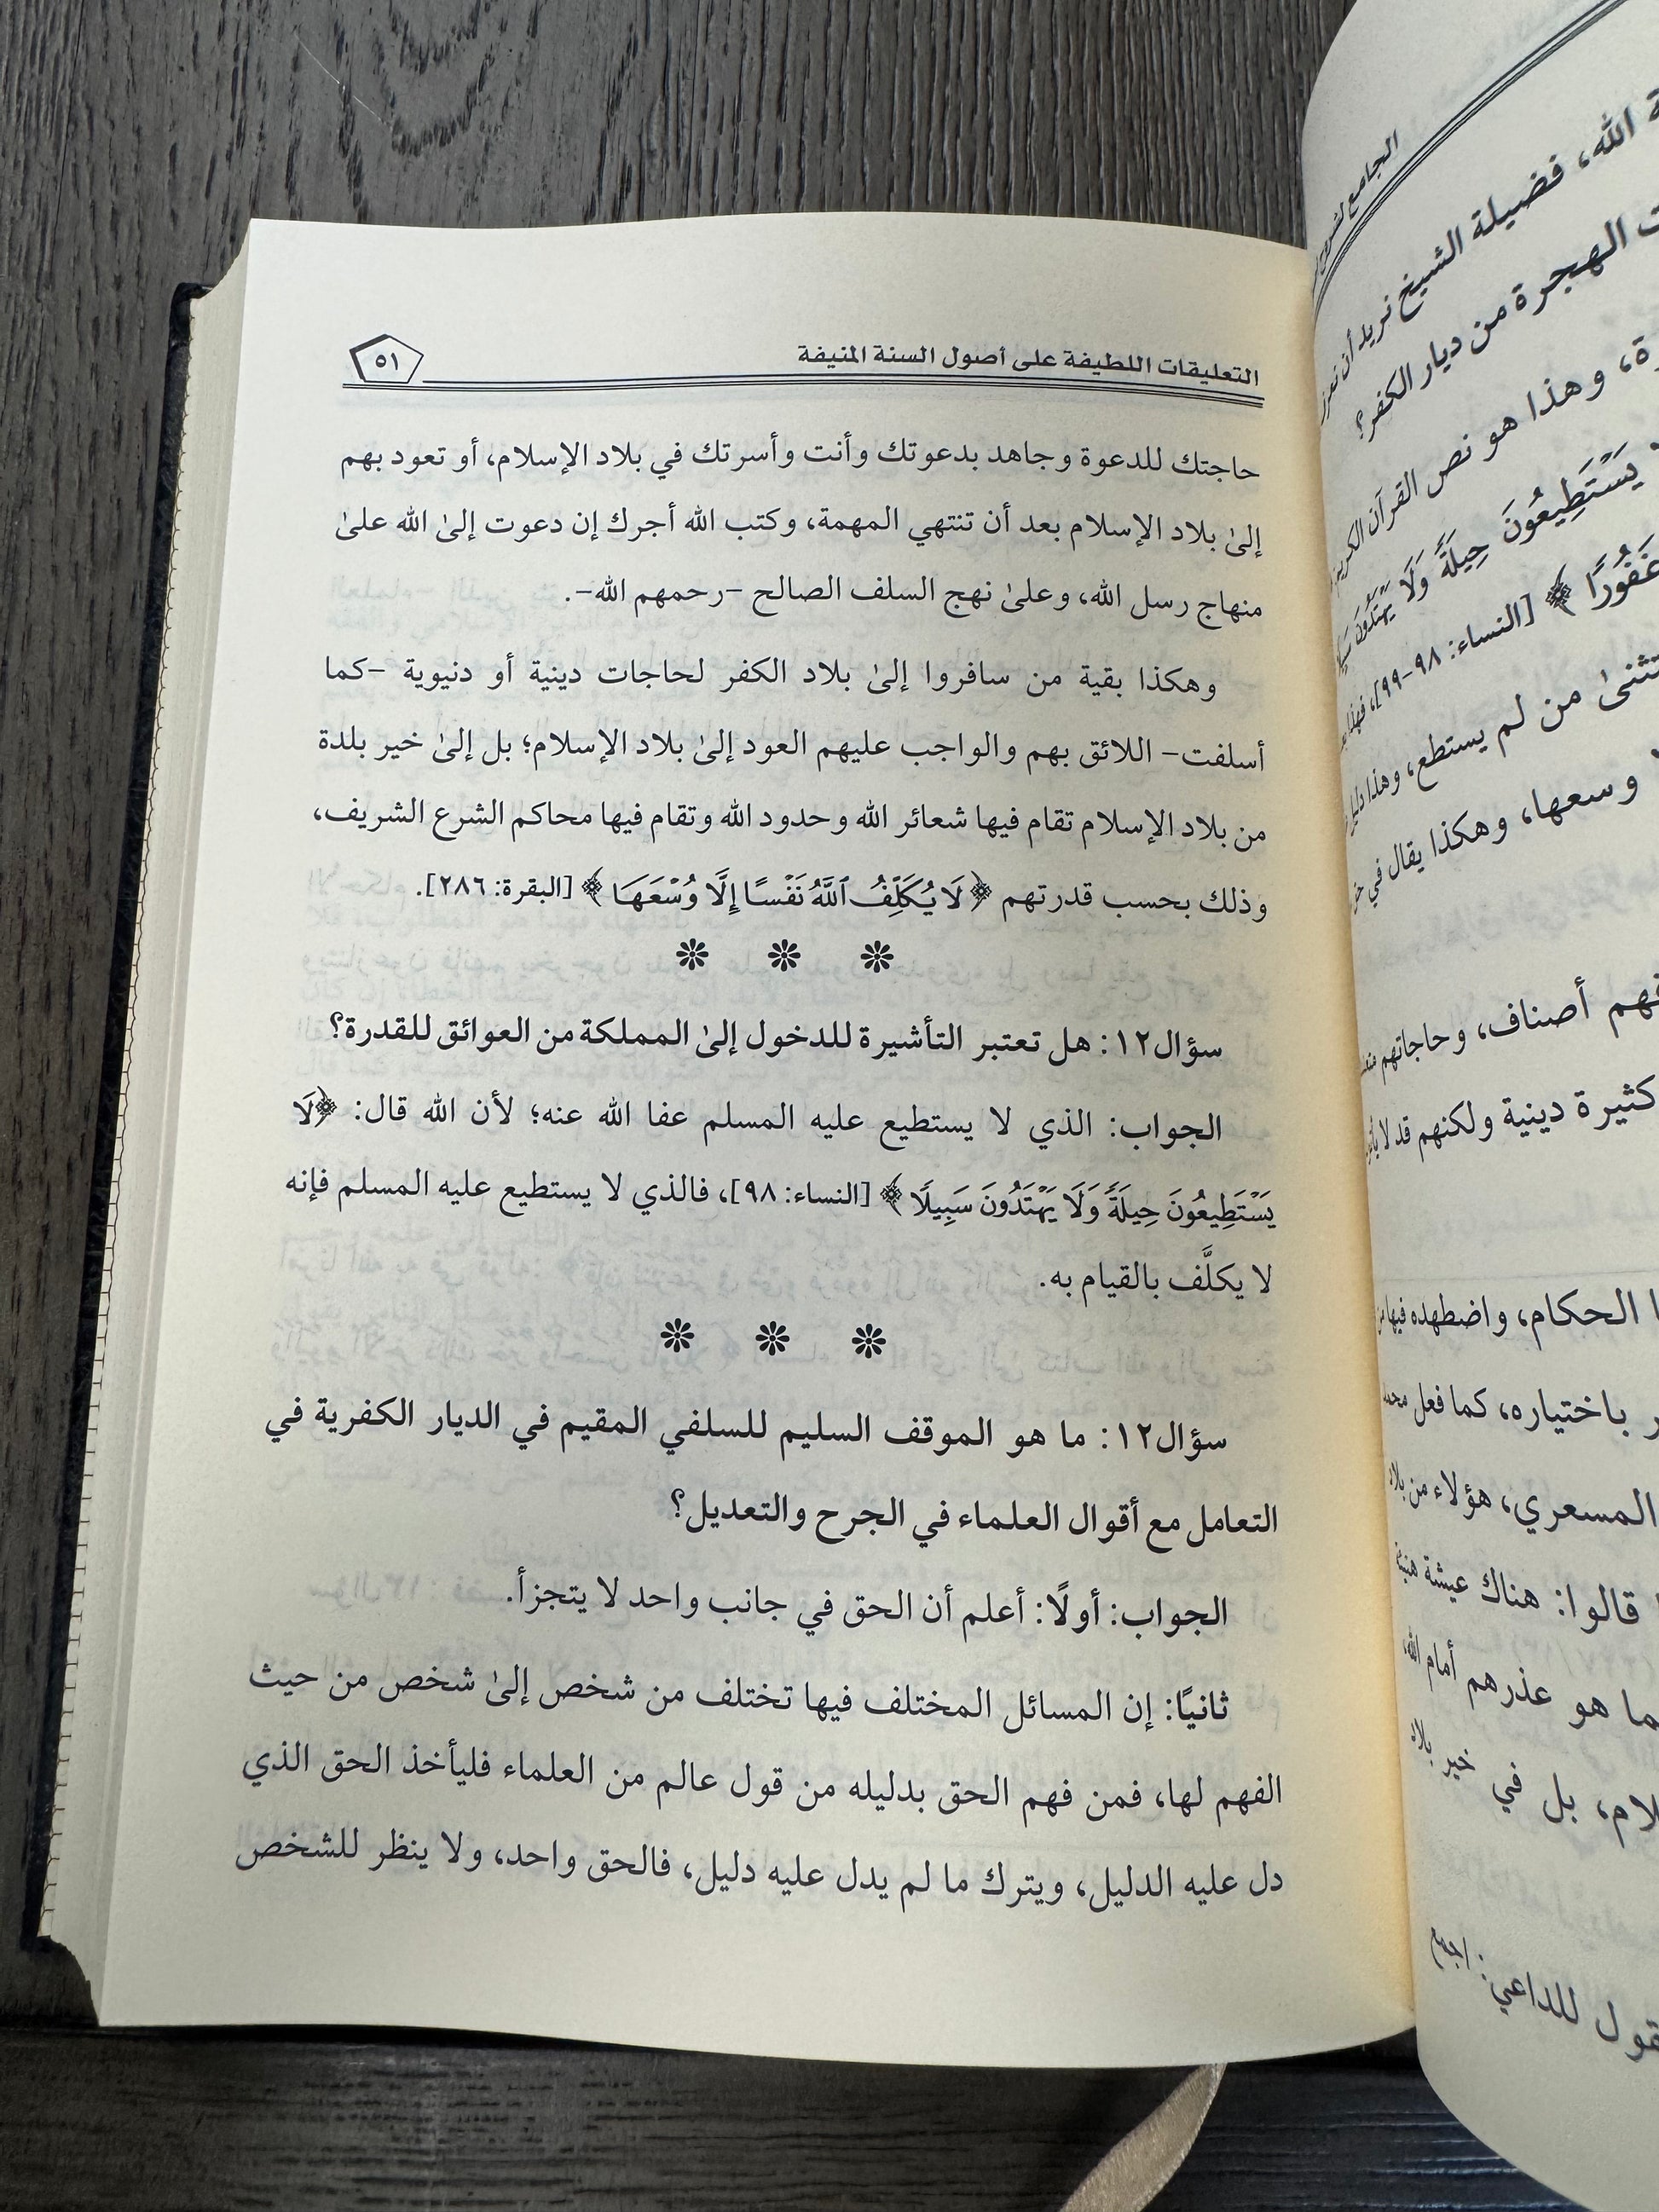 التعليقات اللطيفة على أصول السنة المنيفة
٥١
حاجتك للدعوة وجاهد بدعوتك وأنت وأسرتك في بلاد الإسلام، أو تعود بهم
إلىٰ بلاد الإسلام بعد أن تنتهي المهمة، وكتب الله أجرك إن دعوت إلىٰ الله علىٰ
منهاج رسل الله، وعلىٰ نهج السلف الصالح -رحمهم الله-.
وهكذا بقية من سافروا إلىٰ بلاد الكفر لحاجات دينية أو دنيوية -كما
أسلفت- اللائق بهم والواجب عليهم العود إلىٰ بلاد الإسلام؛ بل إلىٰ خير بلدة
من بلاد الإسلام تقام فيها شعائر الله وحدود الله وتقام فيها محاكم الشرع الشريف،
وذلك بحسب قدرتهم ﴿لَا يُكَلِّفُ ٱللَّهُ نَفْسًا إِلَّا وُسْعَهَا﴾ [البقرة: ٢٨٦].
سؤال١٢: هل تعتبر التأشيرة للدخول إلىٰ المملكة من العوائق للقدرة؟
الجواب: الذي لا يستطيع عليه المسلم عفا الله عنه؛ لأن الله قال: ﴿لَا
يَسْتَطِيعُونَ حِيلَةً وَلَا يَهْتَدُونَ سَبِيلًا﴾ [النساء: ٩٨]، فالذي لا يستطيع عليه المسلم فإنه
لا يكلَّف بالقيام به.
سؤال١٢: ما هو الموقف السليم للسلفي المقيم في الديار الكفرية في
التعامل مع أقوال العلماء في الجرح والتعديل؟
الجواب: أولًا: أعلم أن الحق في جانب واحد لا يتجزأ.
ثانيًا: إن المسائل المختلف فيها تختلف من شخص إلىٰ شخص من حيث
الفهم لها، فمن فهم الحق بدليله من قول عالم من العلماء فليأخذ الحق الذي
دل عليه الدليل، ويترك ما لم يدل عليه دليل، فالحق واحد، ولا ينظر للشخص
الجامع
الله، فضيلة الشيخ نريد أن
الهجرة من ديار الكفر؟
وهذا هو نص القرآن الكريم
يَسْتَطِيعُونَ حِيلَةً وَلَا يَهْتَدُونَ
غَفُورًا﴾ [النساء: ٩٨-٩٩]،
من لم يستطع، وهذا
وسعها، وهكذا يقال في
أصناف، وحاجاتهم
كثيرة دينية ولكنهم قد لا
الحكام، واضطهده فيها
باختياره، كما فعل
المسعري، هؤلاء من بلاد
قالوا: هناك عيشة
هو عذرهم أمام الله
بل في خير بلاد
للداعي: